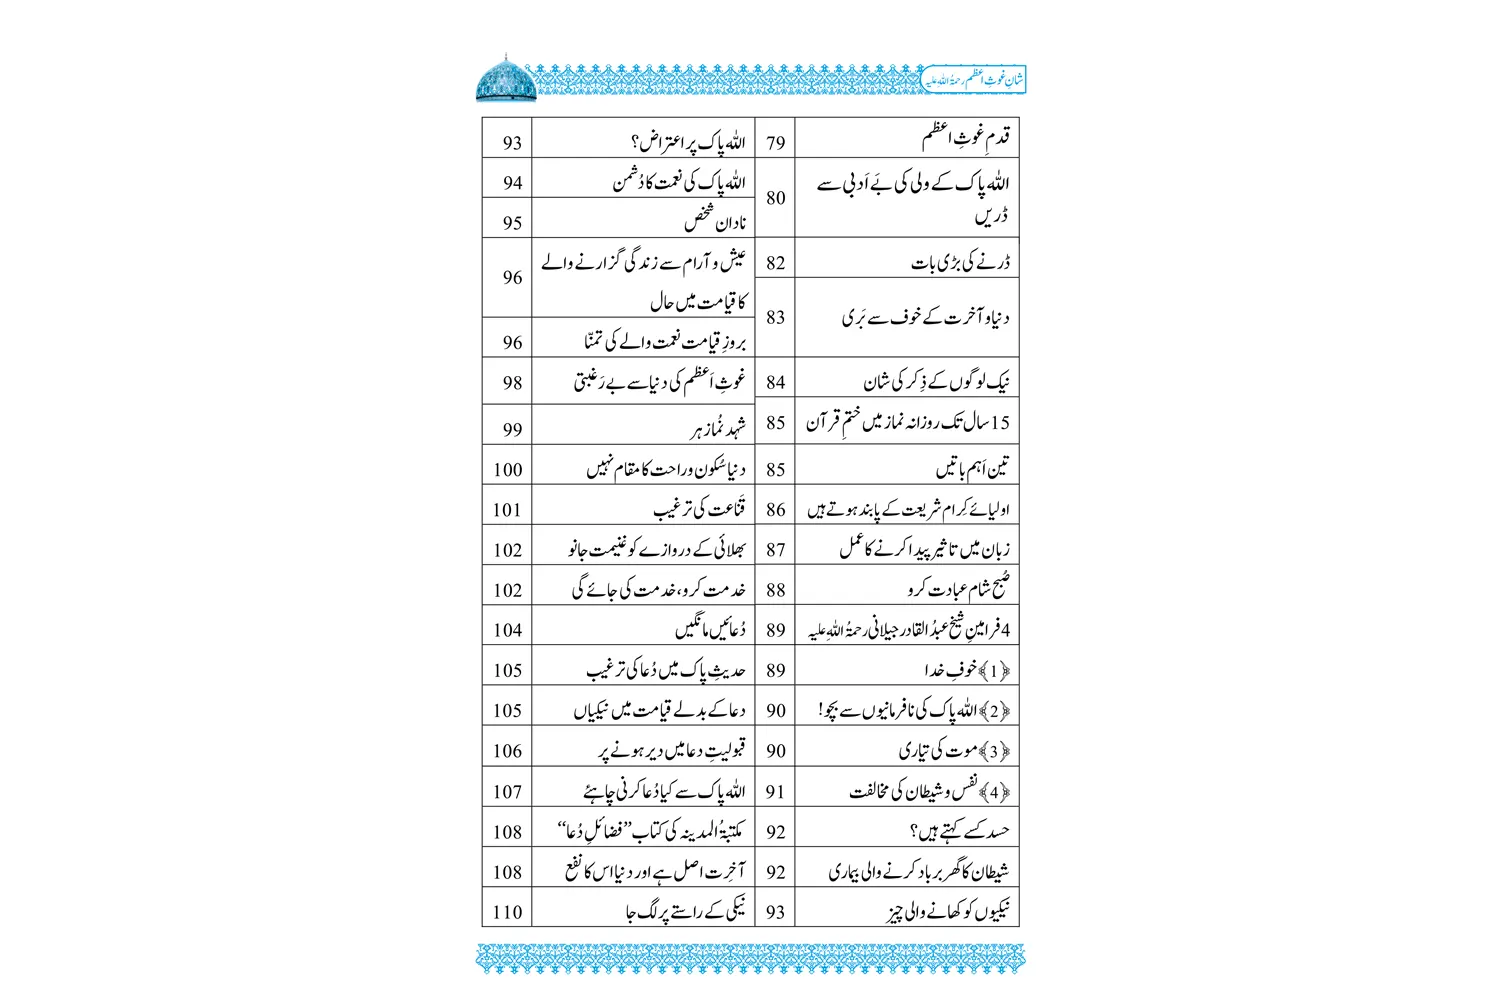 شانِ غوثِ اعظم رحمۃُ اللہِ علیہ
قدمِ غوثِ اعظم 79
اللہ پاک کے ولی کی بےاَدبی سے
ڈریں 80
ڈرنے کی بڑی بات 82
دنیا و آخرت کے خوف سے بَری 83
نیک لوگوں کے ذِکر کی شان 84
15 سال تک روزانہ نماز میں ختمِ قرآن 85
تین اَہم باتیں 85
اولیائے کِرام شریعت کے پابند ہوتے ہیں 86
زبان میں تاثیر پیدا کرنے کا عمل 87
صُبح شام عبادت کرو 88
4 فرامینِ شیخ عبدُ القادر جیلانی رحمۃُ اللہِ علیہ 89
﴿1﴾ خوفِ خدا 89
﴿2﴾ اللہ پاک کی نافرمانیوں سے بچو! 90
﴿3﴾ موت کی تیّاری 90
﴿4﴾ نفس و شیطان کی مخالفت 91
حسد کسے کہتے ہیں؟ 92
شیطان کا گھر برباد کرنے والی بیماری 92
نیکیوں کو کھانے والی چیز 93
اللہ پاک پر اعتراض؟ 93
اللہ پاک کی نعمت کا دُشمن 94
نادان شخص 95
عیش و آرام سے زندگی گزارنے والے
کا قیامت میں حال 96
بروزِ قیامت نعمت والے کی تمنّا 96
غوثِ اَعظم کی دنیا سے بے رَغبتی 98
شہد نُما زہر 99
دنیا سُکون و راحت کا مقام نہیں 100
قَناعت کی ترغیب 101
بھلائی کے دروازے کو غنیمت جانو 102
خدمت کرو، خدمت کی جائے گی 102
دُعائیں مانگیں 104
حدیثِ پاک میں دُعا کی ترغیب 105
دعا کے بدلے قیامت میں نیکیاں 105
قبولیتِ دعا میں دیر ہونے پر 106
اللہ پاک سے کیا دُعا کرنی چاہئے 107
مکتبۃُ المدینہ کی کتاب ”فضائلِ دُعا“ 108
آخِرت اصل ہے اور دنیا اس کا نفع 108
نیکی کے راستے پر لگ جا 110